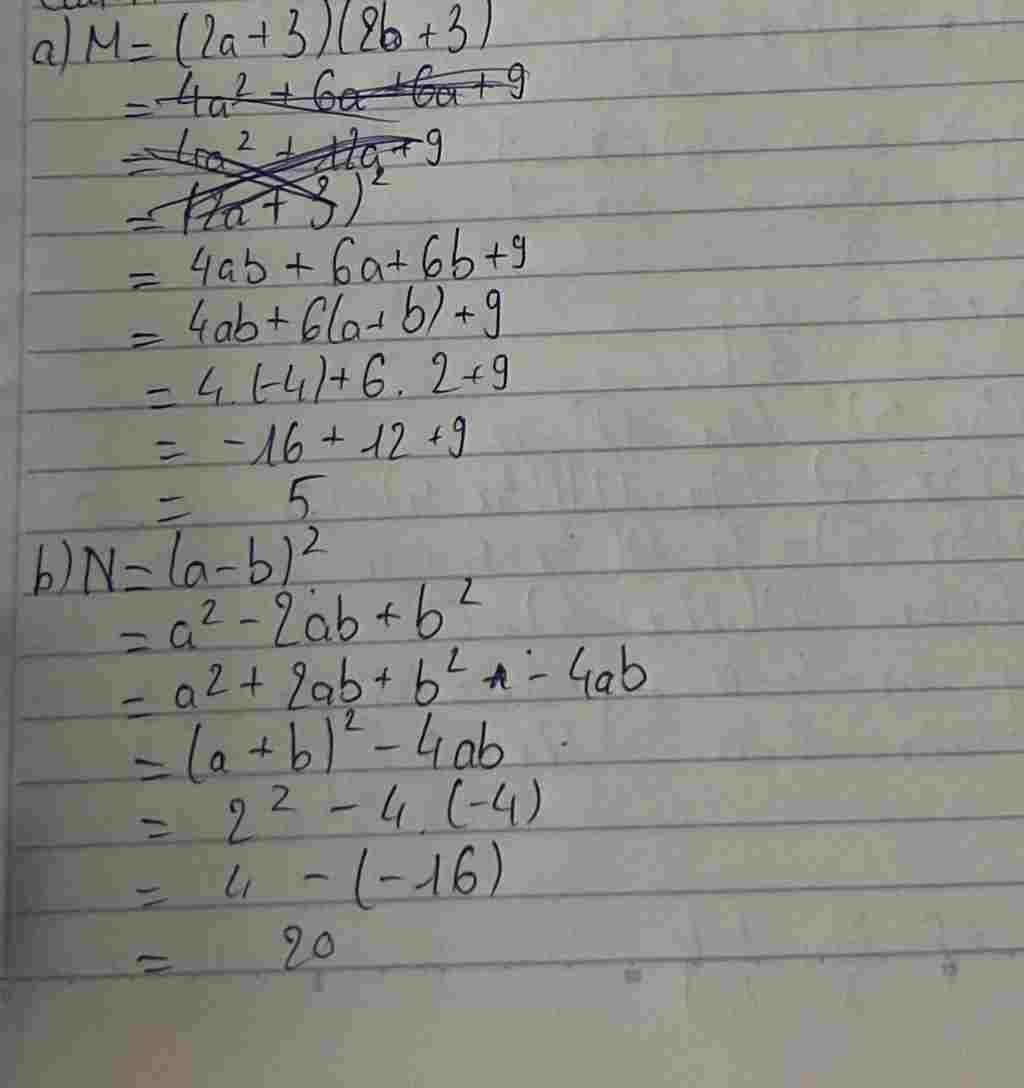 a) M = (2a + 3)(2b + 3)
= 4a² + 6a + 6a + 9
= 4a² + 12a + 9
= (2a + 3)²
= 4ab + 6a + 6b + 9
= 4ab + 6(a + b) + 9
= 4.(-4) + 6. 2 + 9
= -16 + 12 + 9
= 5
b) N = (a - b)²
= a² - 2ab + b²
= a² + 2ab + b² - 4ab
= (a + b)² - 4ab
= 2² - 4.(-4)
= 4 - (-16)
= 20